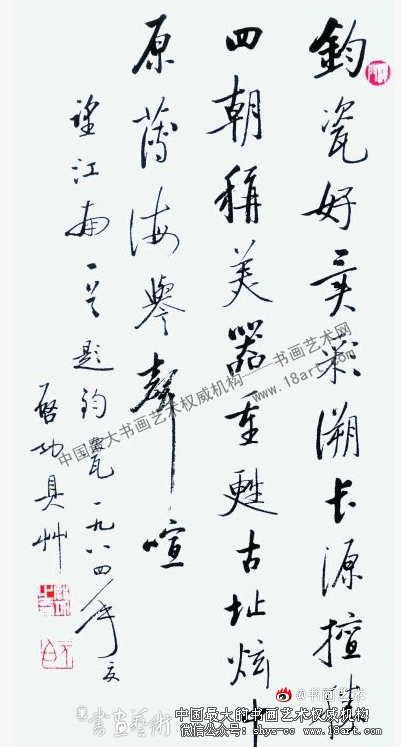 鈞瓷好異彩溯长源擅勝
四朝稱美器重甦古址炫中
原薄海譽聲喧
望江南一首題鈞瓷一九八四年夏
启功具艸
中国最大书画艺术权威机构——书画艺术网
www.18art.com
@书画艺术
書畫藝術
中国最大的书画艺术权威机构
微信公众号: shys-cc www.18art.com